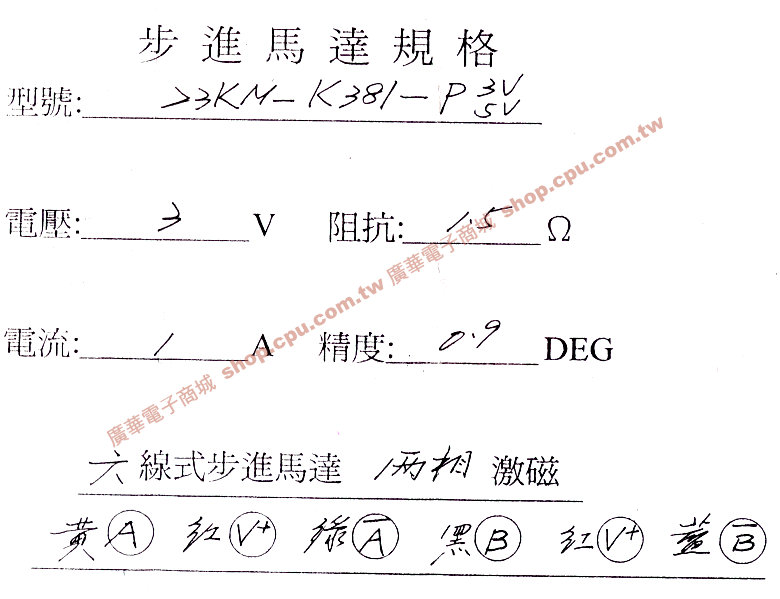 步進馬達規格
型號: 23KM-K381-P 3V 5V
電壓: 3 V 阻抗: 1.5 Ω
電流: 1 A 精度: 0.9 DEG
六線式步進馬達 兩相 激磁
黃 A 紅 V+ 綠 A̅ 黑 B 紅 V+ 藍 B̅
廣華電子商城 shop.cpu.com.tw 廣華電子商城 shop.cpu.com.tw